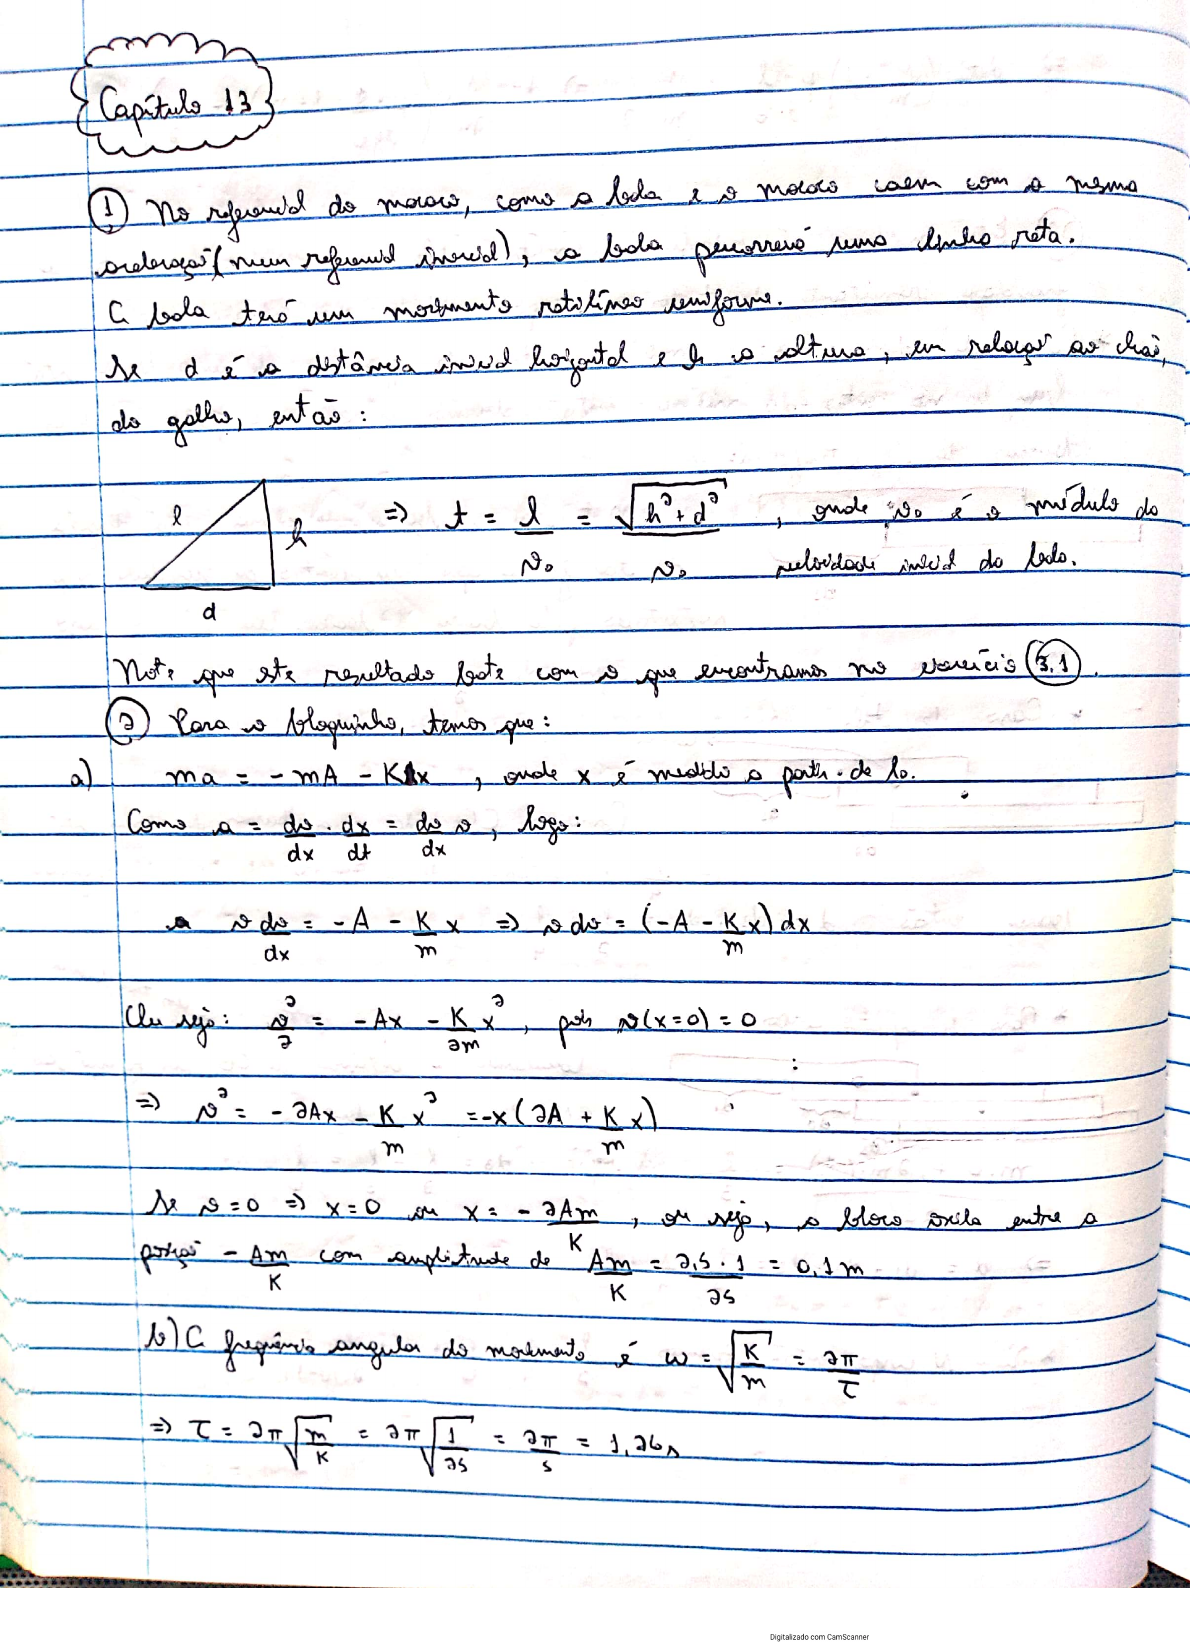 Capítulo 13
① No referencial do macaco, como a bola e o macaco caem com a mesma
aceleração (num referencial inercial), a bola percorrerá uma linha reta.
A bola terá um movimento retilíneo uniforme.
Se d é a distância inicial horizontal e h a altura, em relação ao chão,
do galho, então:
l h d ⇒ t = l/v₀ = √(h²+d²)/v₀ , onde v₀ é o módulo da
velocidade inicial da bola.
Note que este resultado bate com o que encontramos no exercício 3.1.
② Para o bloquinho, temos que:
a) ma = -mA - Kx , onde x é medido a partir de l₀.
Como a = dv/dx · dx/dt = dv/dx v , logo:
v dv/dx = -A - K/m x ⇒ v dv = (-A - K/m x) dx
Ou seja: v²/2 = -Ax - K/2m x² , pois v(x=0) = 0
⇒ v² = -2Ax - K/m x² = -x(2A + K/m x)
Se v=0 ⇒ x=0 ou x = -2Am/K , ou seja, o bloco oscila entre a
posição -Am/K com amplitude de Am/K = 2,5 · 1/25 = 0,1 m
b) A frequência angular do movimento é ω = √(K/m) = 2π/τ
⇒ τ = 2π√(m/K) = 2π√(1/25) = 2π/5 = 1,26 s
Digitalizado com CamScanner